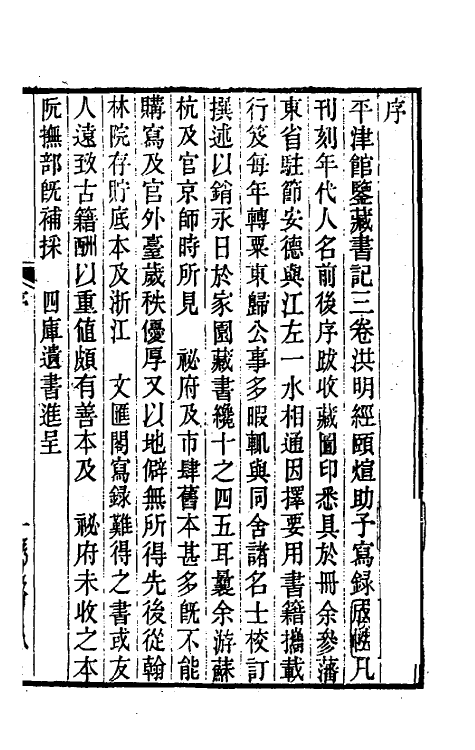 序
平津館鑒藏書記三卷洪明經頤煊助予寫錄成帙凡
刊刻年代人名前後序跋收藏圖印悉具於冊余參藩
東省駐節安德與江左一水相通因擇要用書籍攜載
行笈每年轉粟東歸公事多暇輒與同舍諸名士校訂
撰述以銷永日於家園藏書纔十之四五耳曩余游蘇
杭及官京師時所見 祕府及市肆舊本甚多旣不能
購寫及官外臺歲秩優厚又以地僻無所得先後從翰
林院存貯底本及浙江 文匯閣寫録難得之書或友
人遠致古籍酬以重值頗有善本及 祕府未收之本
阮撫部旣補採 四庫遺書進呈
序